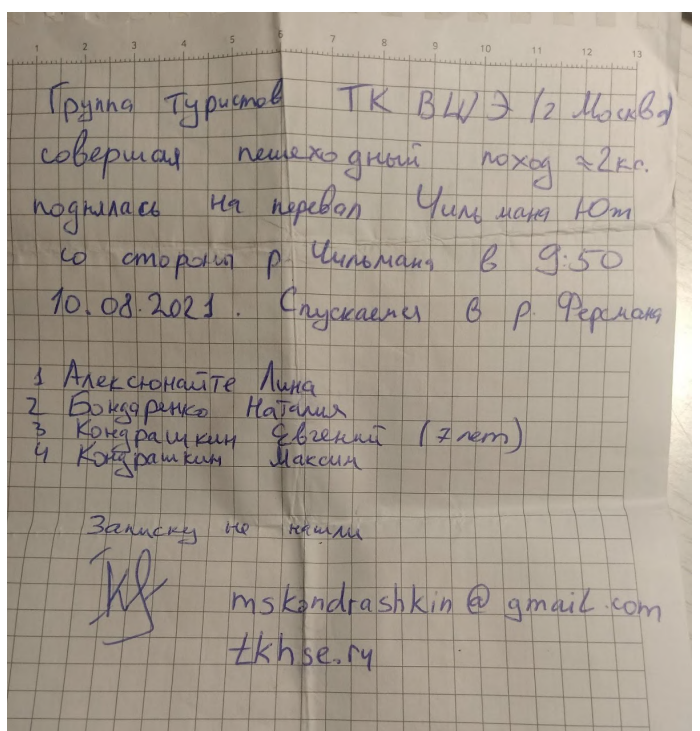 1 2 3 4 5 6 7 8 9 10 11 12 13
Группа туристов ТК ВШЭ (г Москва)
совершая пешеходный поход ≈2кс.
поднялась на перевал Чильмана Юм
со стороны р. Чильмана в 9:50
10.08.2021. Спускаемся в р. Ферсмана
1 Алексюнайте Лина
2 Бондаренко Наталия
3 Кондрашкин Евгений (7 лет)
4 Кондрашкин Максим
Записку не нашли
mskondrashkin@gmail.com
tkhse.ru